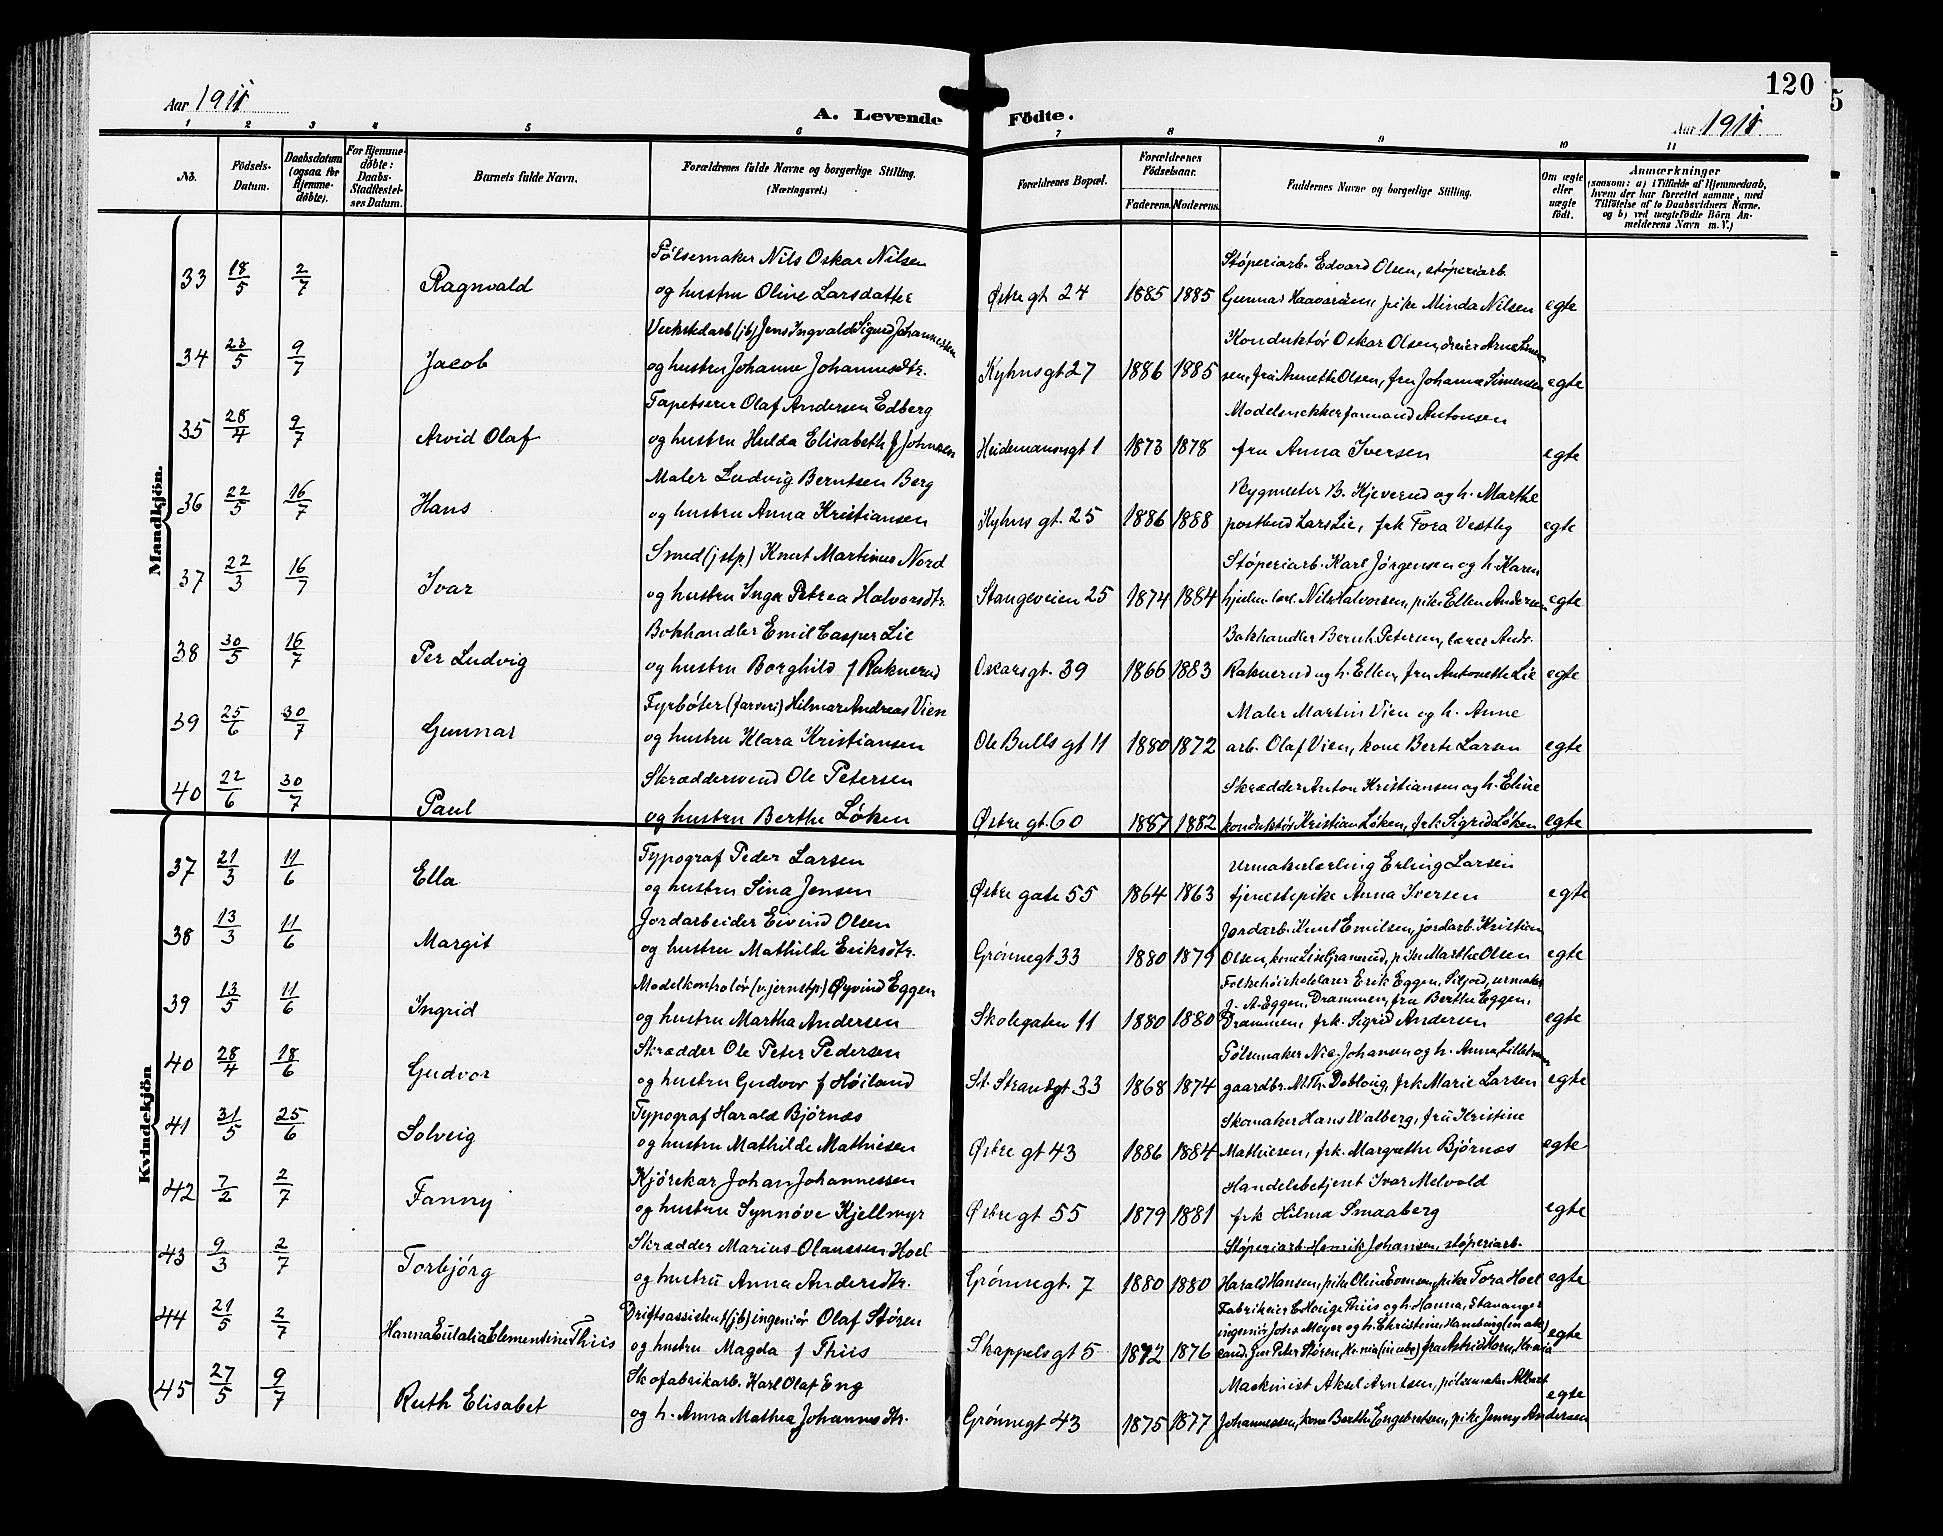 120
Aar 1911
A. Levende Födte.
Aar 1911
1 2 3 4 5 6 7 8 9 10 11
No.
Födsels-Datum.
Daabsdatum (ogsaa for Hjemmedöbte).
For Hjemmedöbte: Daabs-Stadfæstelses Datum.
Barnets fulde Navn.
Forældrenes fulde Navne og borgerlige Stilling. (Næringsvei.)
Forældrenes Bopæl.
Forældrenes Födselsaar.
Faderens. Moderens.
Faddernes Navne og borgerlige Stilling.
Om ægte eller uægte födt.
Anmærkninger
(saasom: a) i Tilfælde af Hjemmedaab, hvem der har forrettet samme, med Tilföielse af to Daabsvidners Navne, og b) ved uægtefödte Börn Anmelderens Navn m. V.)
Mandkjön.
Pølsemaker Nils Oskar Nilsen Støperiarb. Edvard Olsen, støperiarb
33 18/5 2/7 Ragnvald og hustru Oline Larsdatter Østre gt 24 1885 1885 Gunnar Haavaraim, pike Minda Nilsen egte
Verkstedarb (jb) Jens Ingvald Sigurd Johannessen Konduktør Oskar Olsen, dreier Arne Simen
34 23/5 9/7 Jacob og hustru Johanne Johannesdtr. Kyhnsgt 27 1886 1885 sen, fru Annette Olsen, fru Johanna Simensen egte
Tapetserer Olaf Andersen Edberg Modelsnekkerformand Antonsen
35 28/4 9/7 Arvid Olaf og hustru Hulda Elisabeth f Johnsen Heidemannsgt 1 1873 1878 fru Anna Iversen egte
Maler Ludvig Berntsen Berg Bygmester B. Kjeverud og h. Marthe
36 22/5 16/7 Hans og hustru Anna Kristiansen Kyhns gt. 25 1886 1888 postbud Lars Lie, frk Tora Vestby egte
Smed (j stp) Knut Martinus Nord Støperiarb. Karl Jørgensen og h. Karen
37 22/3 16/7 Ivar og hustru Inga Petrea Halvorsdtr. Stangeveien 25 1874 1884 Nils Halvorsen, pike Ellen Andersen egte
Bokhandler Emil Casper Lie Bokhandler Bernh. Petersen, lærer Andr.
38 30/5 16/7 Per Ludvig og hustru Borghild f Raknerud Oskarsgt. 39 1866 1883 Raknerud og h. Ellen, fru Antonette Lie egte
Fyrbøter (farveri) Hilmar Andreas Vien Maler Martin Vien og h. Anne
39 25/6 30/7 Gunnar og hustru Klara Kristiansen Ole Bulls gt 11 1880 1872 arb. Olaf Vien, kone Berte Larsen egte
Skrædersvend Ole Petersen Skrædder Anton Kristiansen og h. Eline
40 22/6 30/7 Paul og hustru Berthe Løken Østre gt. 60 1887 1882 konduktør Kristian Løken, frk Sigrid Løken egte
Kvindekjön
Typograf Peder Larsen Urmakerlærling Erling Larsen
37 21/3 11/6 Ella og hustru Sina Jensen Østre gate 55 1864 1863 tjenestepike Anna Iversen egte
Jordarbeider Eivind Olsen Jordarb. Knut Emilsen, jordarb. Kristian
38 13/3 11/6 Margit og hustru Mathilde Eriksdtr. Grønnegt 33 1880 1879 Olsen, kone Lise Granerud, pike Marthe Olsen egte
Modelkontrolør (v. jernstp) Øyvind Eggen Folkehøiskolelærer Erik Eggen, Siljord, urmaker
39 13/5 11/6 Ingrid og hustru Martha Andersen Skolegaten 11 1880 1880 J. A. Eggen, Drammen, fru Berthe Eggen,
Drammen, frk. Sigrid Andersen egte
Skrædder Ole Peter Pedersen Pølsemaker Nic. Johansen og h. Anna, Lillehammer
40 28/4 18/6 Gudvor og hustru Gudvor f Høiland St. Strandgt. 33 1868 1874 gaardbr. M. Th. Dobloug, frk Marie Larsen egte
Typograf Harald Bjørnæs Skomaker Hans Walberg, fru Kristine
41 31/5 25/6 Solveig og hustru Mathilde Mathiesen Østre gt 43 1886 1884 Mathiesen, frk. Margrethe Bjørnæs egte
Kjørekar Johan Johannessen Handelsbetjent Ivar Melvold
42 7/2 2/7 Fanny og hustru Synnøve Kjellmyr Østre gt 55 1879 1881 frk Hilma Smaaberg egte
Skrædder Marius Olaussen Hoel Støperiarb. Henrik Johansen, støperiarb.
43 9/3 2/7 Torbjørg og hustru Anna Andersdtr. Grønnegt. 7 1880 1880 Harald Hansen, pike Oline Evensen, pike Tora Hoel egte
Driftsassistent (jb) ingeniør Olaf Støren Fabrikeier C Houge Thiis og h. Hanna, Stavanger
44 21/5 2/7 Hanna Eulalia Clementine Thiis og hustru Magda f Thiis Skappelsgt 5 1872 1876 ingeniør Johs Meyer og h. Christine, Hamburg
cand. Jur Peter Støren, Kr.nia, fru Astrid Horn, Kr.nia egte
Skofabrikarb. Karl Olaf Eng Maskinist Aksel Arntsen, pølsemaker Albert
45 27/5 9/7 Ruth Elisabet og h. Anna Mathea Johannesdtr. Grønnegt 43 1875 1877 Johannessen, kone Berthe Engebretsen, pike Jenny Andersen egte